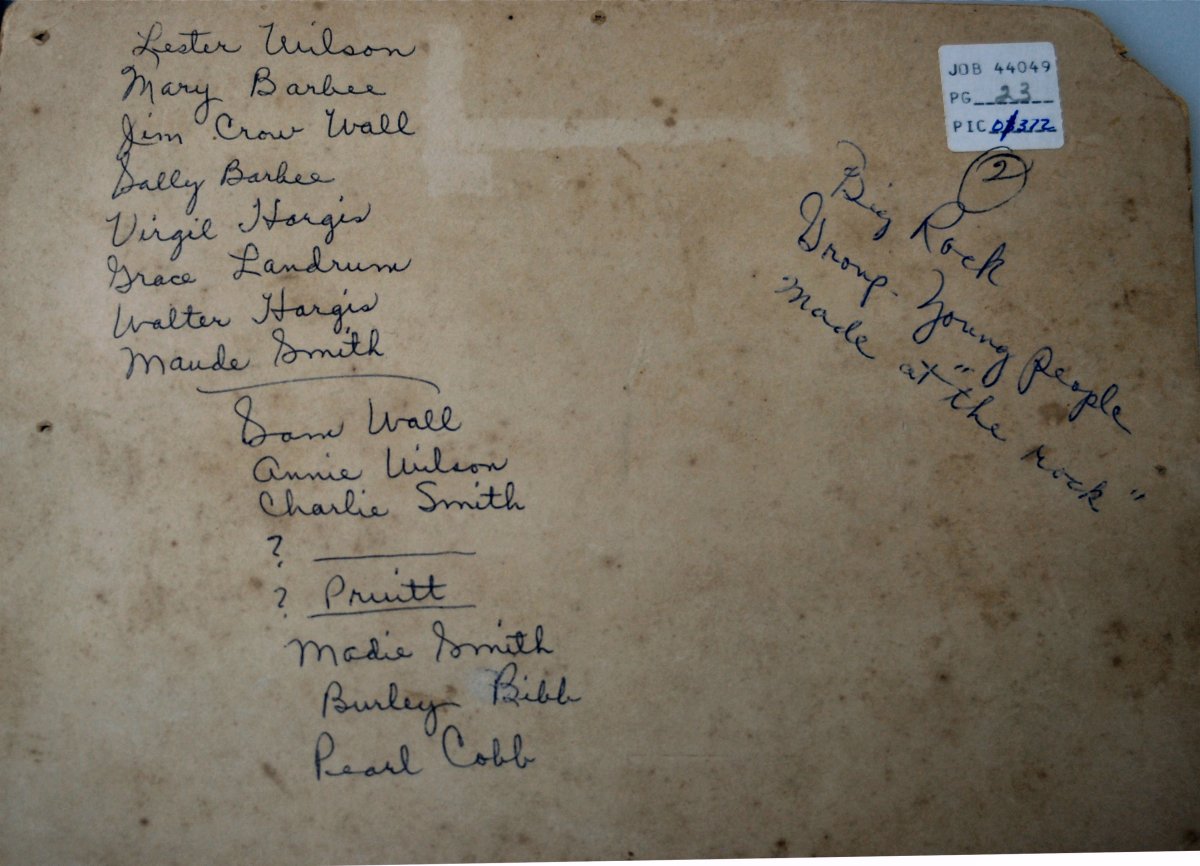 Lester Wilson
Mary Barbee
Jim Crow Wall
Sally Barbee
Virgil Hargis
Grace Landrum
Walter Hargis
Maude Smith
Sam Wall
Annie Wilson
Charlie Smith
?
? Pruitt
Madie Smith
Burley Bibb
Pearl Cobb
JOB 44049
PG 23
PIC
2
Big Rock
Group - Young People
Made at "the rock"